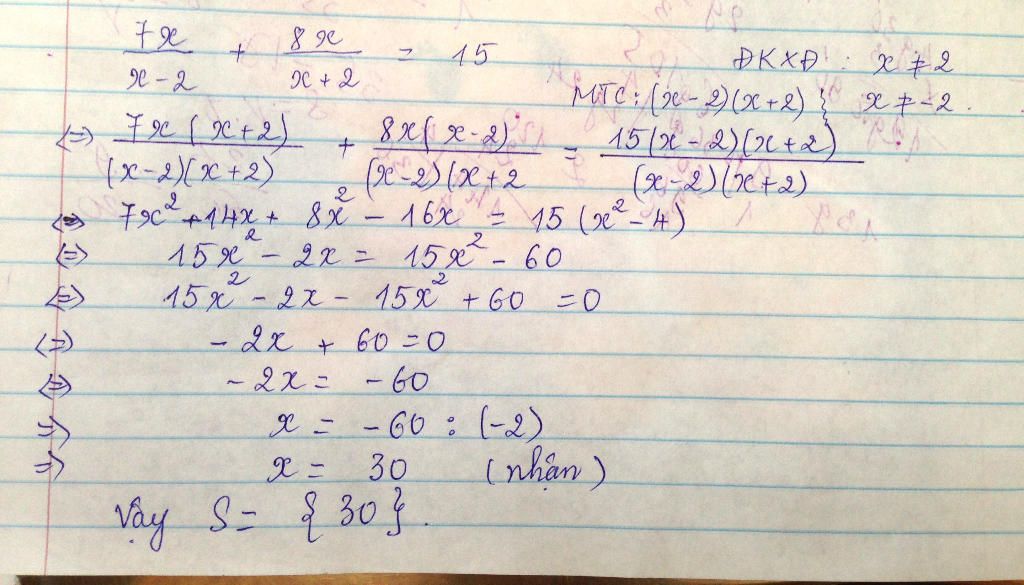 7x/(x-2) + 8x/(x+2) = 15 ĐKXĐ : x ≠ 2
MTC: (x-2)(x+2) } x ≠ -2.
<=> 7x(x+2)/((x-2)(x+2)) + 8x(x-2)/((x-2)(x+2 = 15(x-2)(x+2)/((x-2)(x+2))
<=> 7x² + 14x + 8x² - 16x = 15(x² - 4)
<=> 15x² - 2x = 15x² - 60
<=> 15x² - 2x - 15x² + 60 = 0
<=> - 2x + 60 = 0
<=> - 2x = - 60
=> x = - 60 : (-2)
=> x = 30 (nhận)
Vậy S = {30}.